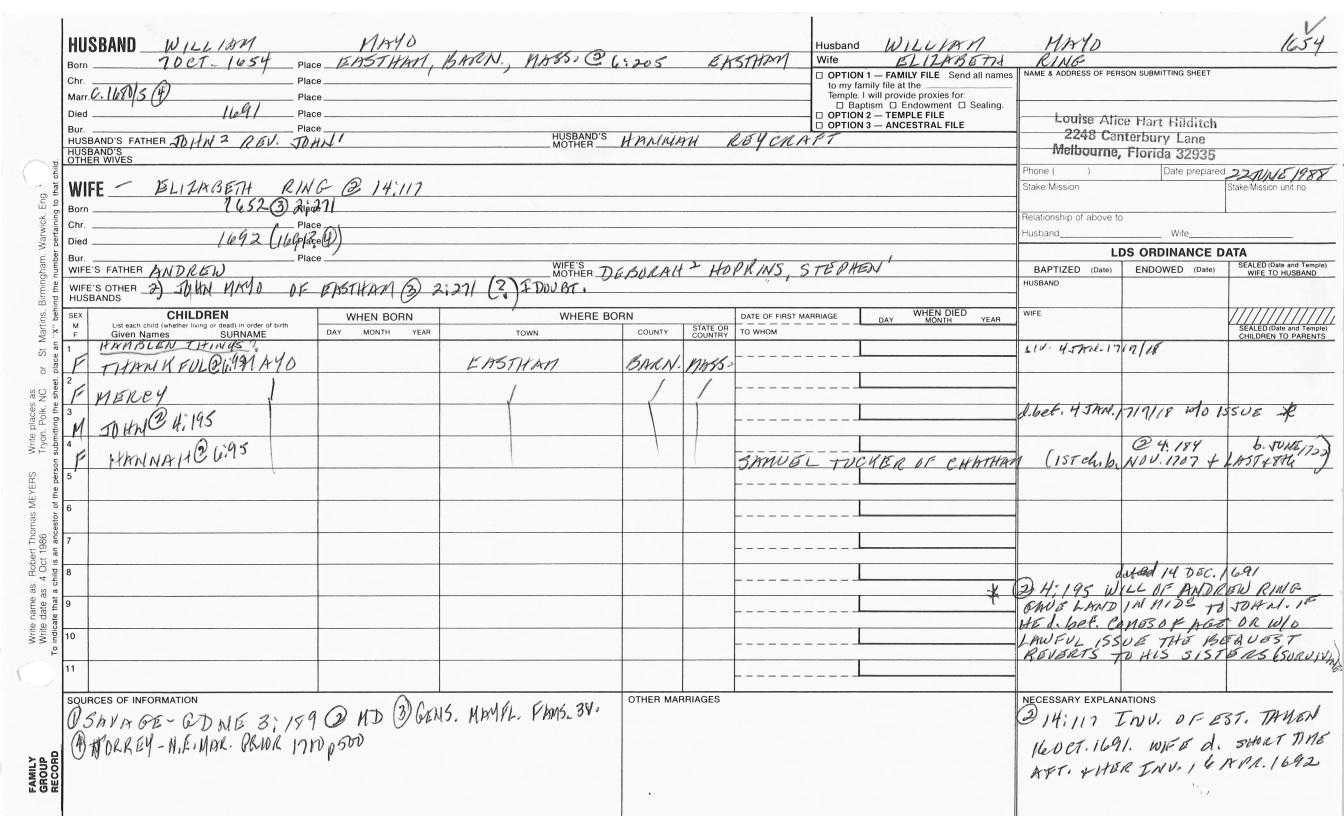 HUSBAND WILLIAM MAYO
Born 7 OCT. 1654 Place EASTHAM, BARN., MASS. @ 6:205 EASTHAM
Chr. Place
Marr. C. 1680/3 ④ Place
Died 1691 Place
Bur. Place
HUSBAND'S FATHER JOHN² REV. JOHN¹ HUSBAND'S MOTHER HANNAH REYCRAFT
HUSBAND'S OTHER WIVES
WIFE — ELIZABETH RING @ 14:117
Born 1652 ③ 2:271 Place
Chr. Place
Died 1692 Place
Bur. Place
WIFE'S FATHER ANDREW WIFE'S MOTHER DEBORAH² HOPKINS, STEPHEN¹
WIFE'S OTHER HUSBANDS 2) JOHN MAYO OF EASTHAM ③ 2:271 (?) I DOUBT.
Husband WILLIAM MAYO 1654
Wife ELIZABETH RING
☐ OPTION 1 — FAMILY FILE Send all names
to my family file at the
Temple. I will provide proxies for:
☐ Baptism ☐ Endowment ☐ Sealing.
☐ OPTION 2 — TEMPLE FILE
☐ OPTION 3 — ANCESTRAL FILE
NAME & ADDRESS OF PERSON SUBMITTING SHEET
Louise Alice Hart Hilditch
2248 Canterbury Lane
Melbourne, Florida 32935
Phone ( ) Date prepared 22 JUNE 1988
Stake/Mission Stake/Mission unit no.
Relationship of above to
Husband Wife
LDS ORDINANCE DATA
BAPTIZED (Date) ENDOWED (Date) SEALED (Date and Temple) WIFE TO HUSBAND
HUSBAND
WIFE
SEALED (Date and Temple) CHILDREN TO PARENTS
SEX M F CHILDREN WHEN BORN WHERE BORN DATE OF FIRST MARRIAGE WHEN DIED
List each child (whether living or dead) in order of birth
Given Names SURNAME DAY MONTH YEAR TOWN COUNTY STATE OR COUNTRY TO WHOM DAY MONTH YEAR
HAMBLEN THINGS?
1 F THANKFUL MAYO EASTHAM BARN. MASS. liv. 4 JAN. 1717/18
2 F MERCY
3 M JOHN @ 4:195 d. bet. 4 JAN. 1717/18 W/O ISSUE *
4 F HANNAH @ 6:95 SAMUEL TUCKER OF CHATHAM (1ST ch. b. NOV. 1707 + LAST + 8th b. JUNE 1722) @ 4:184
5
6
7
8
9
10
11
dated 14 DEC. 1691
* ② 4:195 WILL OF ANDREW RING
GAVE LAND IN MIDS TO JOHN. IF
HE d. bef. COMES OF AGE OR W/O
LAWFUL ISSUE THE BEQUEST
REVERTS TO HIS SISTERS (SURVIVING)
SOURCES OF INFORMATION
① SAVAGE - GDNE 3:189 ② MD ③ GENS. MAYFL. FAMS. 3V.
④ TORREY - N.E. MAR. PRIOR 1700 p500
OTHER MARRIAGES
NECESSARY EXPLANATIONS
② 14:117 INV. OF EST. TAKEN
16 OCT. 1691. WIFE d. SHORT TIME
AFT. + HER INV., 6 APR. 1692
Write name as: Robert Thomas MEYERS Write places as: Tryon, Polk, NC or St. Martins, Birmingham, Warwick, Eng.
Write date as: 4 Oct 1986
To indicate that a child is an ancestor of the person submitting the sheet, place an "X" behind the number pertaining to that child.
FAMILY GROUP RECORD